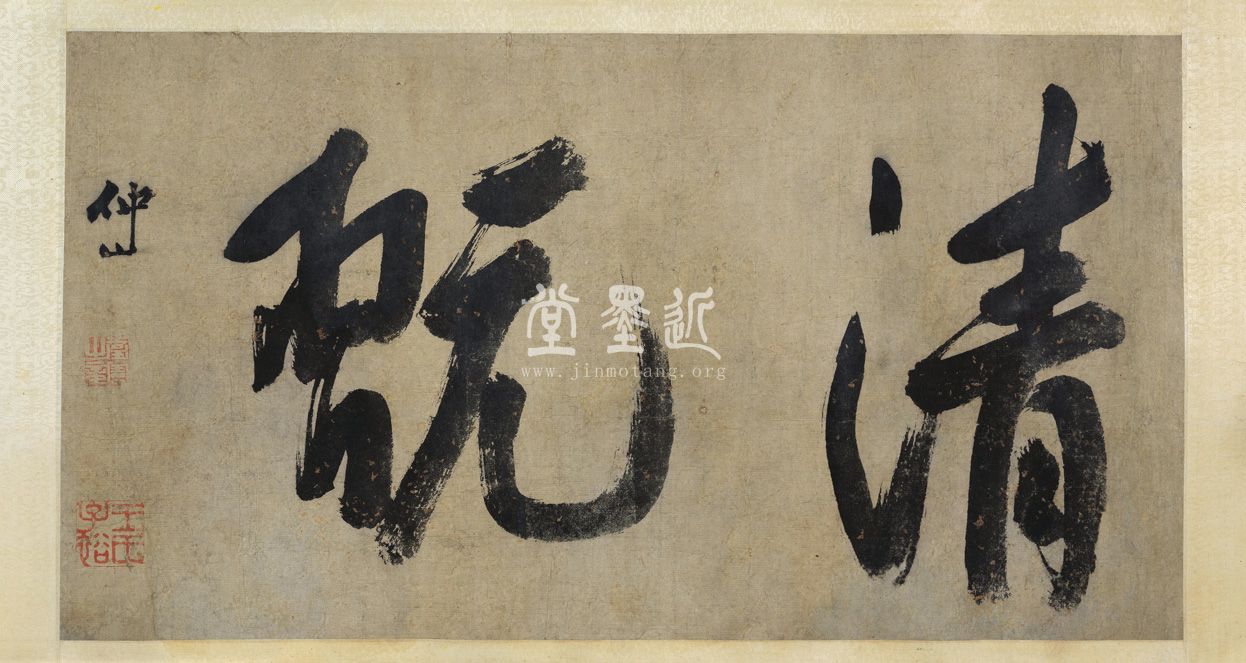 清翫
仲山
王氏子裕
近墨堂
www.jinmotang.org